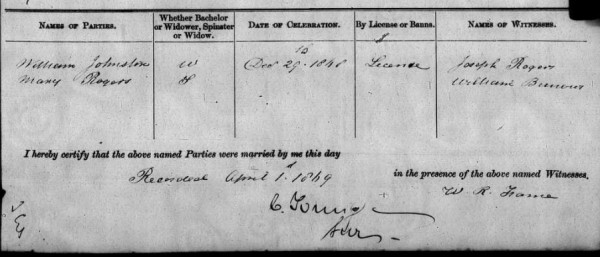 NAMES OF PARTIES. Whether Bachelor or Widower, Spinster or Widow. DATE OF CELEBRATION. By License or Banns. NAMES OF WITNESSES.
William Johnston W Dec 29. 1848 License Joseph Rogers
Mary Rogers William
I hereby certify that the above named Parties were married by me this day
Recorded April 1. 1849 in the presence of the above named Witnesses.
W. R.
C. Young